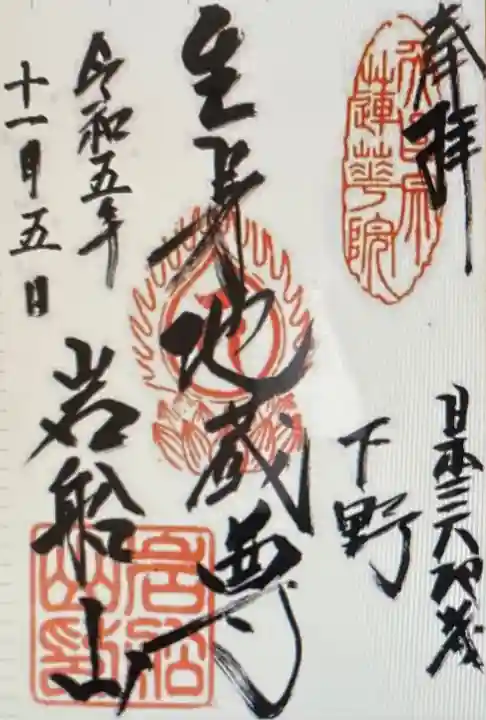 奉拝
蓮華院
日本三大地蔵
下野
生身地蔵尊
令和五年
十一月五日
岩船山